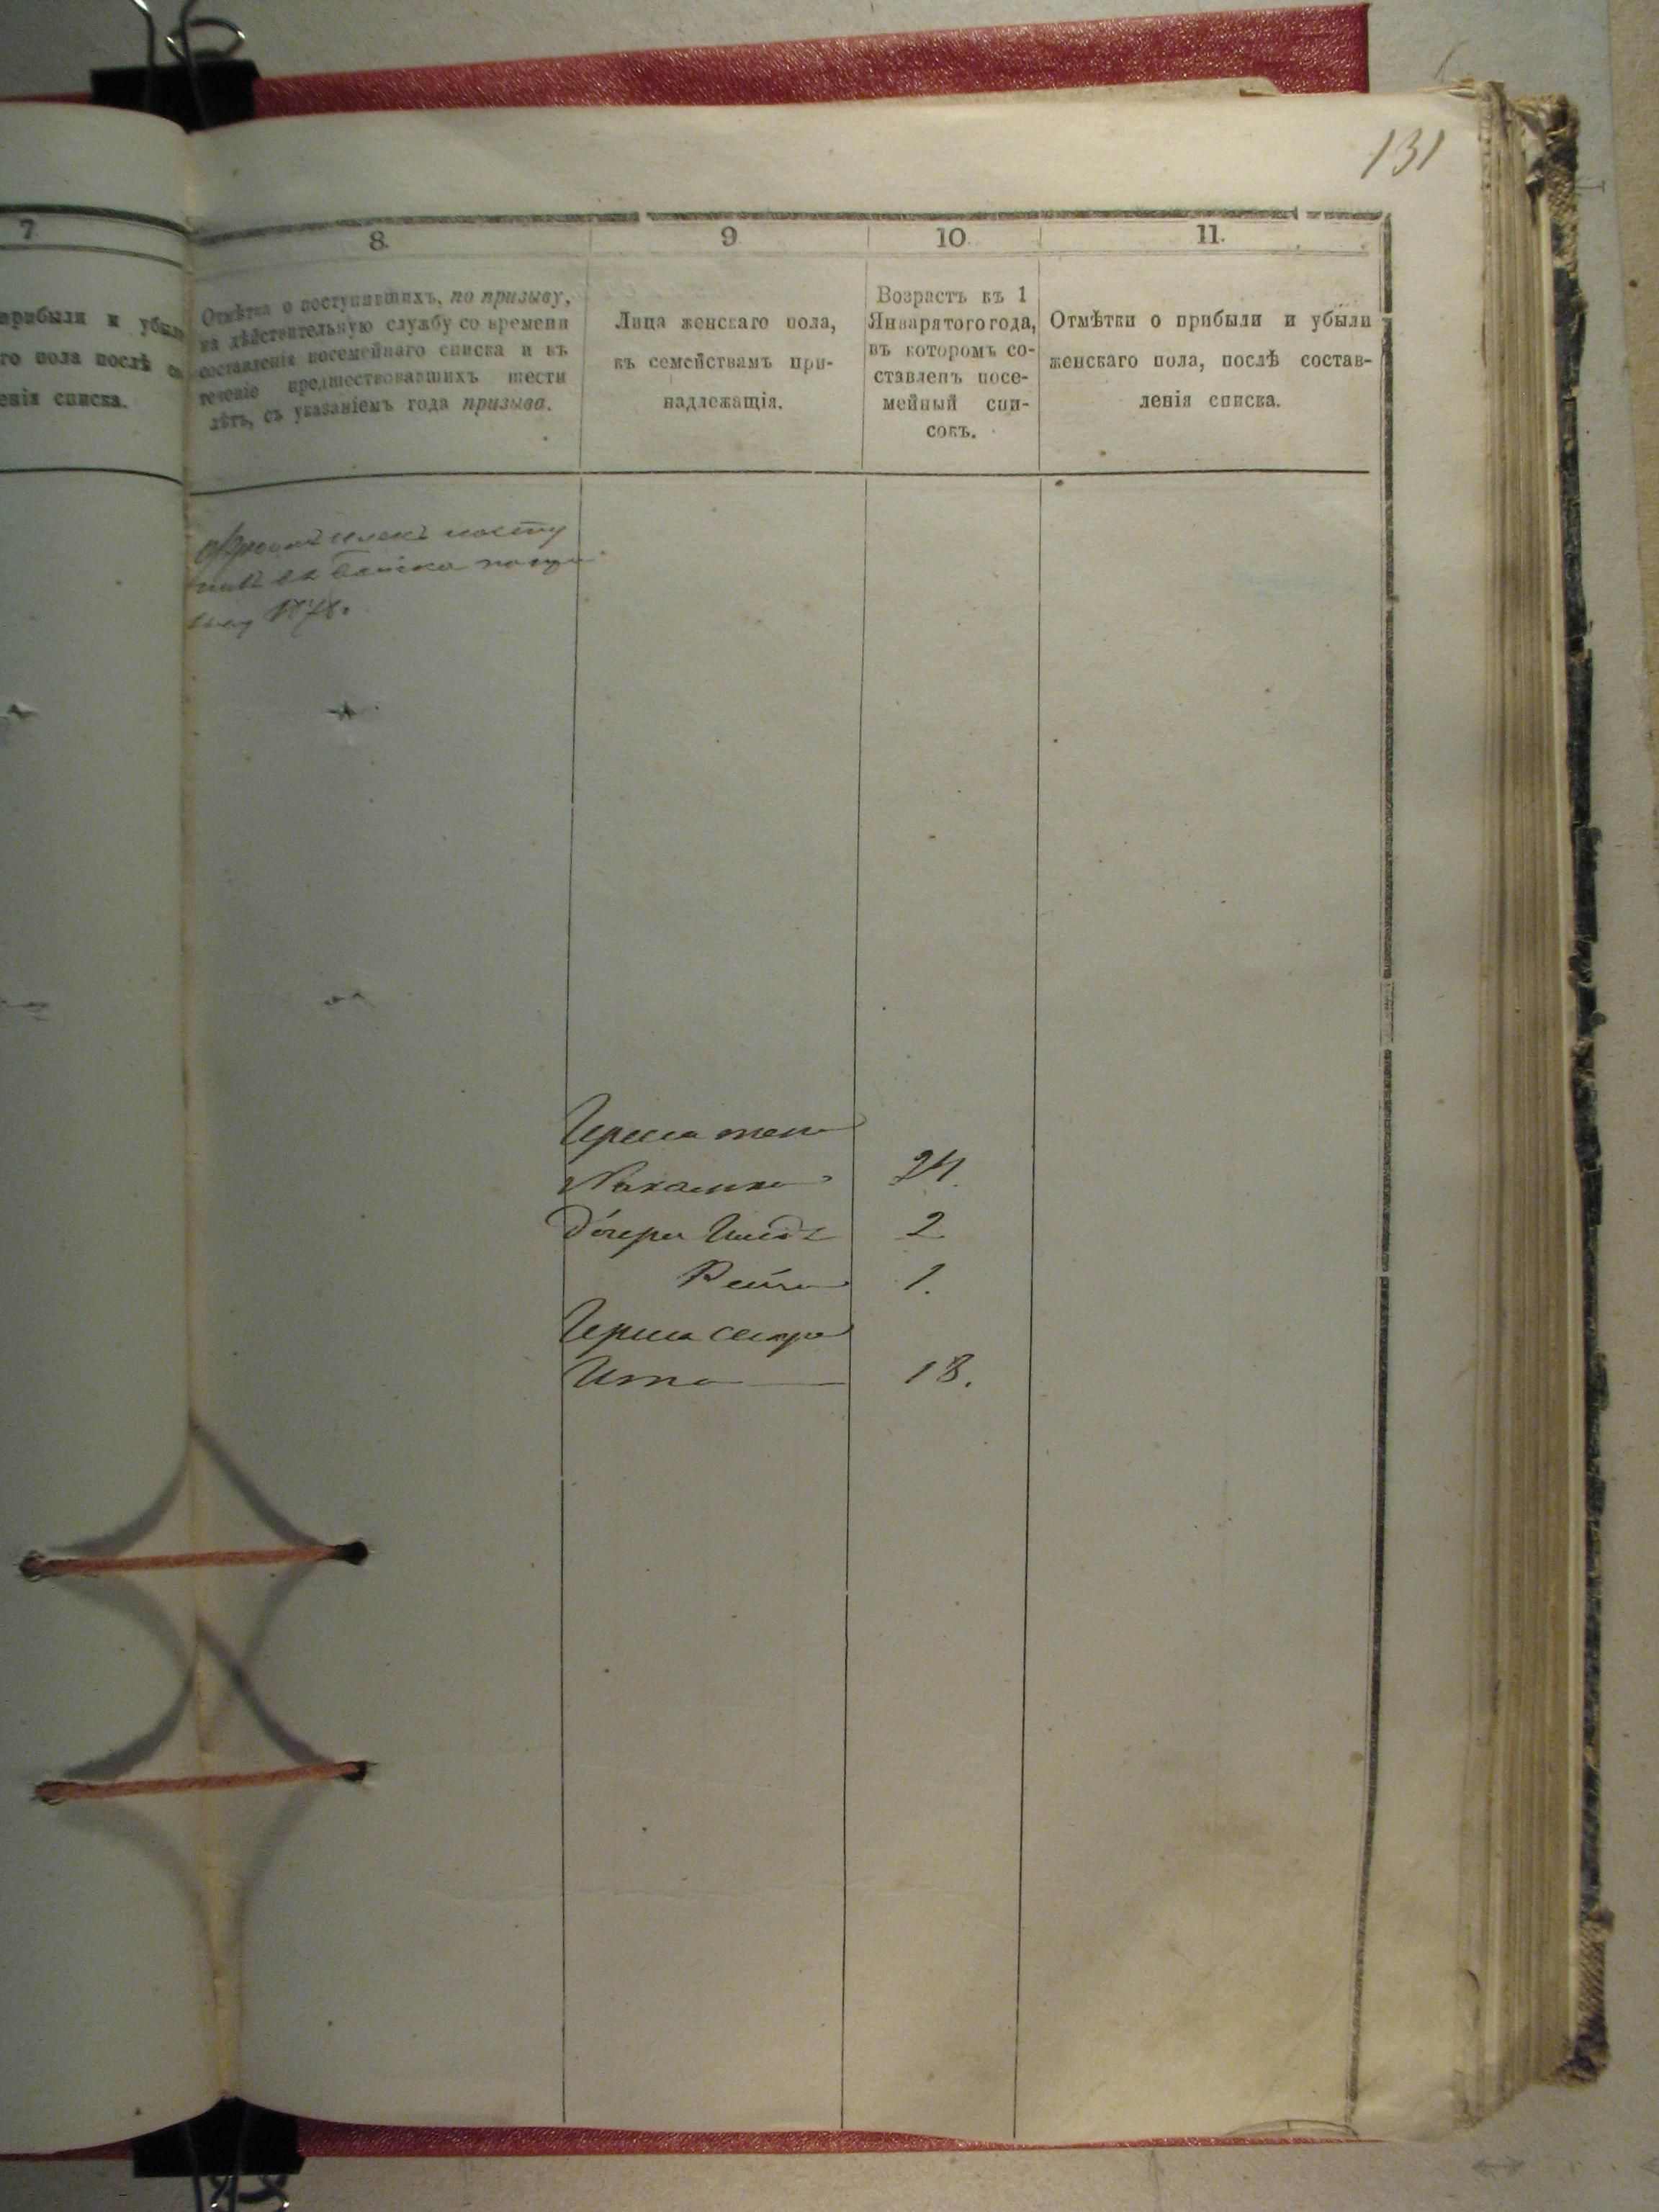 131
7
8.
9
10.
11.
прибыли и убыли
го пола послѣ
енія списка.
Отмѣтка о поступившихъ, по призыву,
на дѣйствительную службу со времени
составленія посемейнаго списка и въ
теченіе предшествовавшихъ шести
лѣтъ, съ указаніемъ года призыва.
Лица женскаго пола,
къ семействамъ при-
надлежащія.
Возрастъ къ 1
Января того года,
въ которомъ со-
ставленъ посе-
мейный спи-
сокъ.
Отмѣтки о прибыли и убыли
женскаго пола, послѣ состав-
ленія списка.
посту
въ войска
1878.
жена
24.
дочери
2.
1.
сестра
Ита
18.